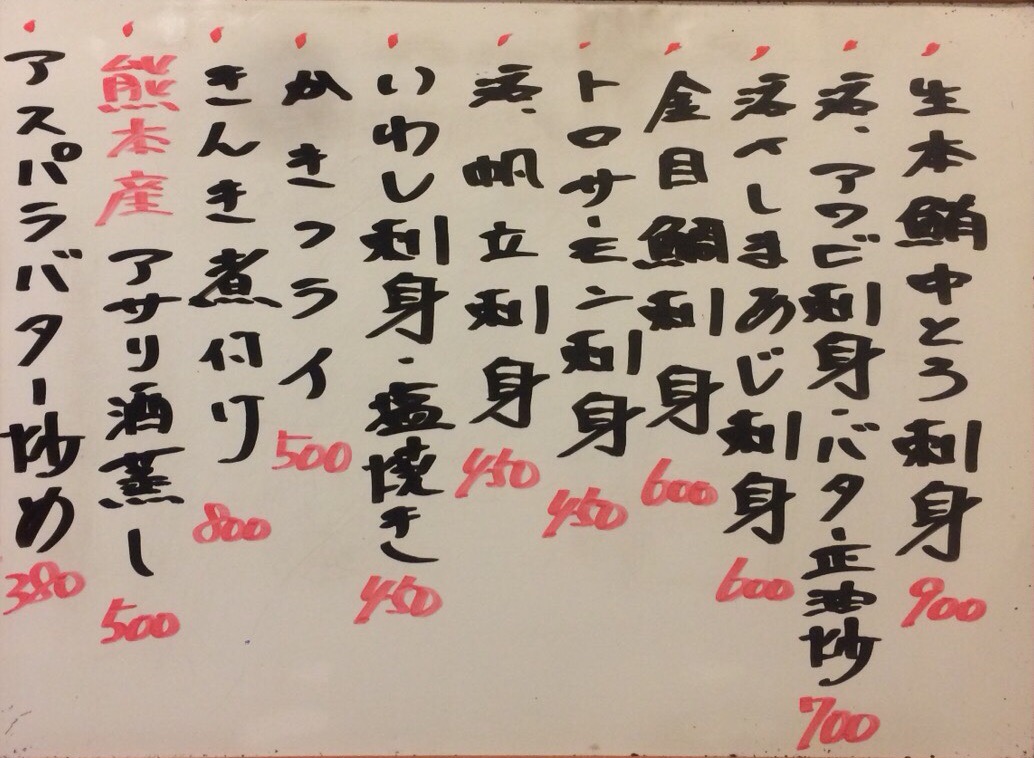 生本鮪中とろ刺身 900
活、アワビ刺身・バター正油炒 700
活イしまあじ刺身 600
金目鯛刺身 600
トロサーモン刺身 450
活、帆立刺身 450
いわし刺身・塩焼き 450
かきフライ 500
きんき煮付け 800
熊本産 アサリ酒蒸し 500
アスパラバター炒め 380